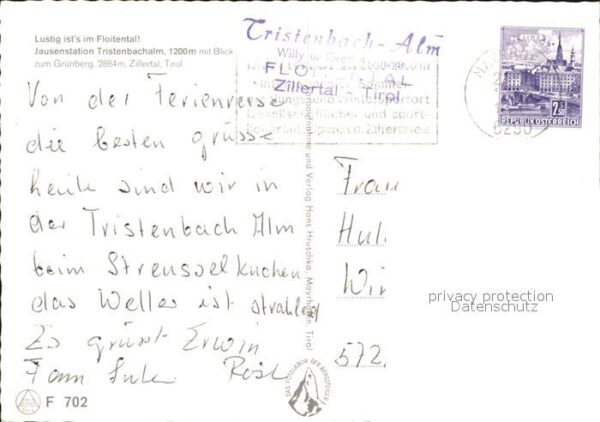 Lustig ist's im Floitental!
Jausenstation Tristenbachalm, 1200m mit Blick
zum Grünberg, 2884m, Zillertal, Tirol
Tristenbach-Alm
Willy u.
FLOITENTAL
Zillertal - Tirol
2.50
REPUBLIK ÖSTERREICH
Von der Ferienreise
die besten grüsse
heute sind wir in
der Tristenbach Alm
beim Streusselkuchen
das Wetter ist strahlend
Es grüsst Erwin
Fam
Frau
Hul
Wir
572
und Verlag Hans Hruschka, Mayrhofen, Tirol
privacy protection
Datenschutz
F 702